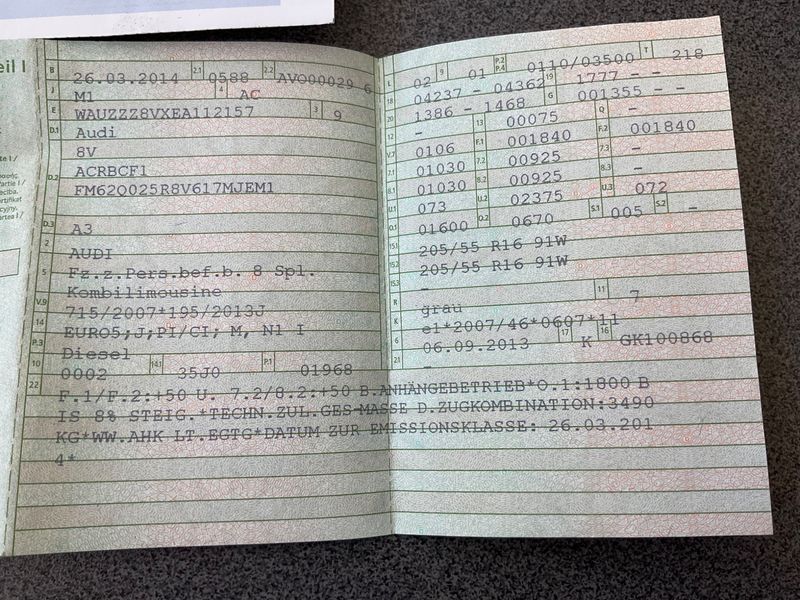 eil I
B 26.03.2014 2.1 0588 2.2 AVO00029 6
J M1 4 AC
E WAUZZZ8VXEA112157 3 9
D.1 Audi
8V
D.2 ACRBCF1
FM62Q025R8V617MJEM1
D.3 A3
2 AUDI
5 Fz.z.Pers.bef.b. 8 Spl.
Kombilimousine
V.9 715/2007*195/2013J
14 EURO5;J;PI/CI; M, N1 I
P.3 Diesel
10 0002 14.1 35J0 P.1 01968
L 02 9 01 P.2 P.4 0110/03500 T 218
18 04237 - 04362 19 1777 - -
20 1386 - 1468 G 001355 - -
12 - 13 00075 Q -
V.7 0106 F.1 001840 F.2 001840
7.1 01030 7.2 00925 7.3 -
8.1 01030 8.2 00925 8.3 -
U.1 073 U.2 02375 U.3 072
O.1 01600 O.2 0670 S.1 005 S.2 -
15.1 205/55 R16 91W
15.2 205/55 R16 91W
15.3 -
R grau 11 7
K e1*2007/46*0607*11
6 06.09.2013 17 K 16 GK100868
21 -
22 F.1/F.2:+50 U. 7.2/8.2:+50 B.ANHÄNGEBETRIEB*O.1:1800 B
IS 8% STEIG.*TECHN.ZUL.GES-MASSE D.ZUGKOMBINATION:3490
KG*WW.AHK LT.EGTG*DATUM ZUR EMISSIONSKLASSE: 26.03.201
4*